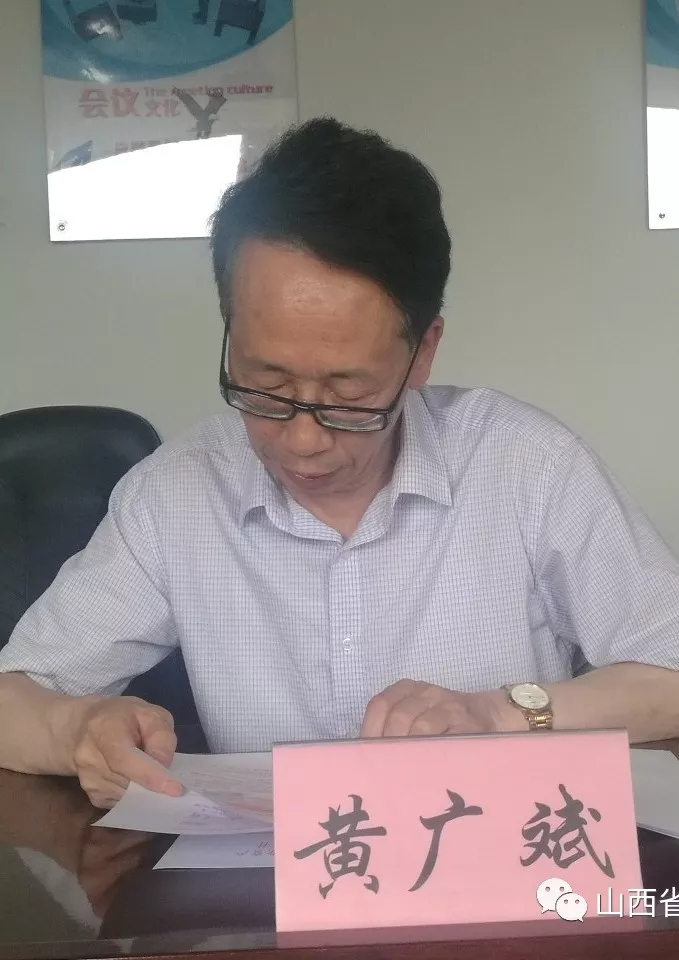 会议
The meeting culture
文化
黄广斌
山西省